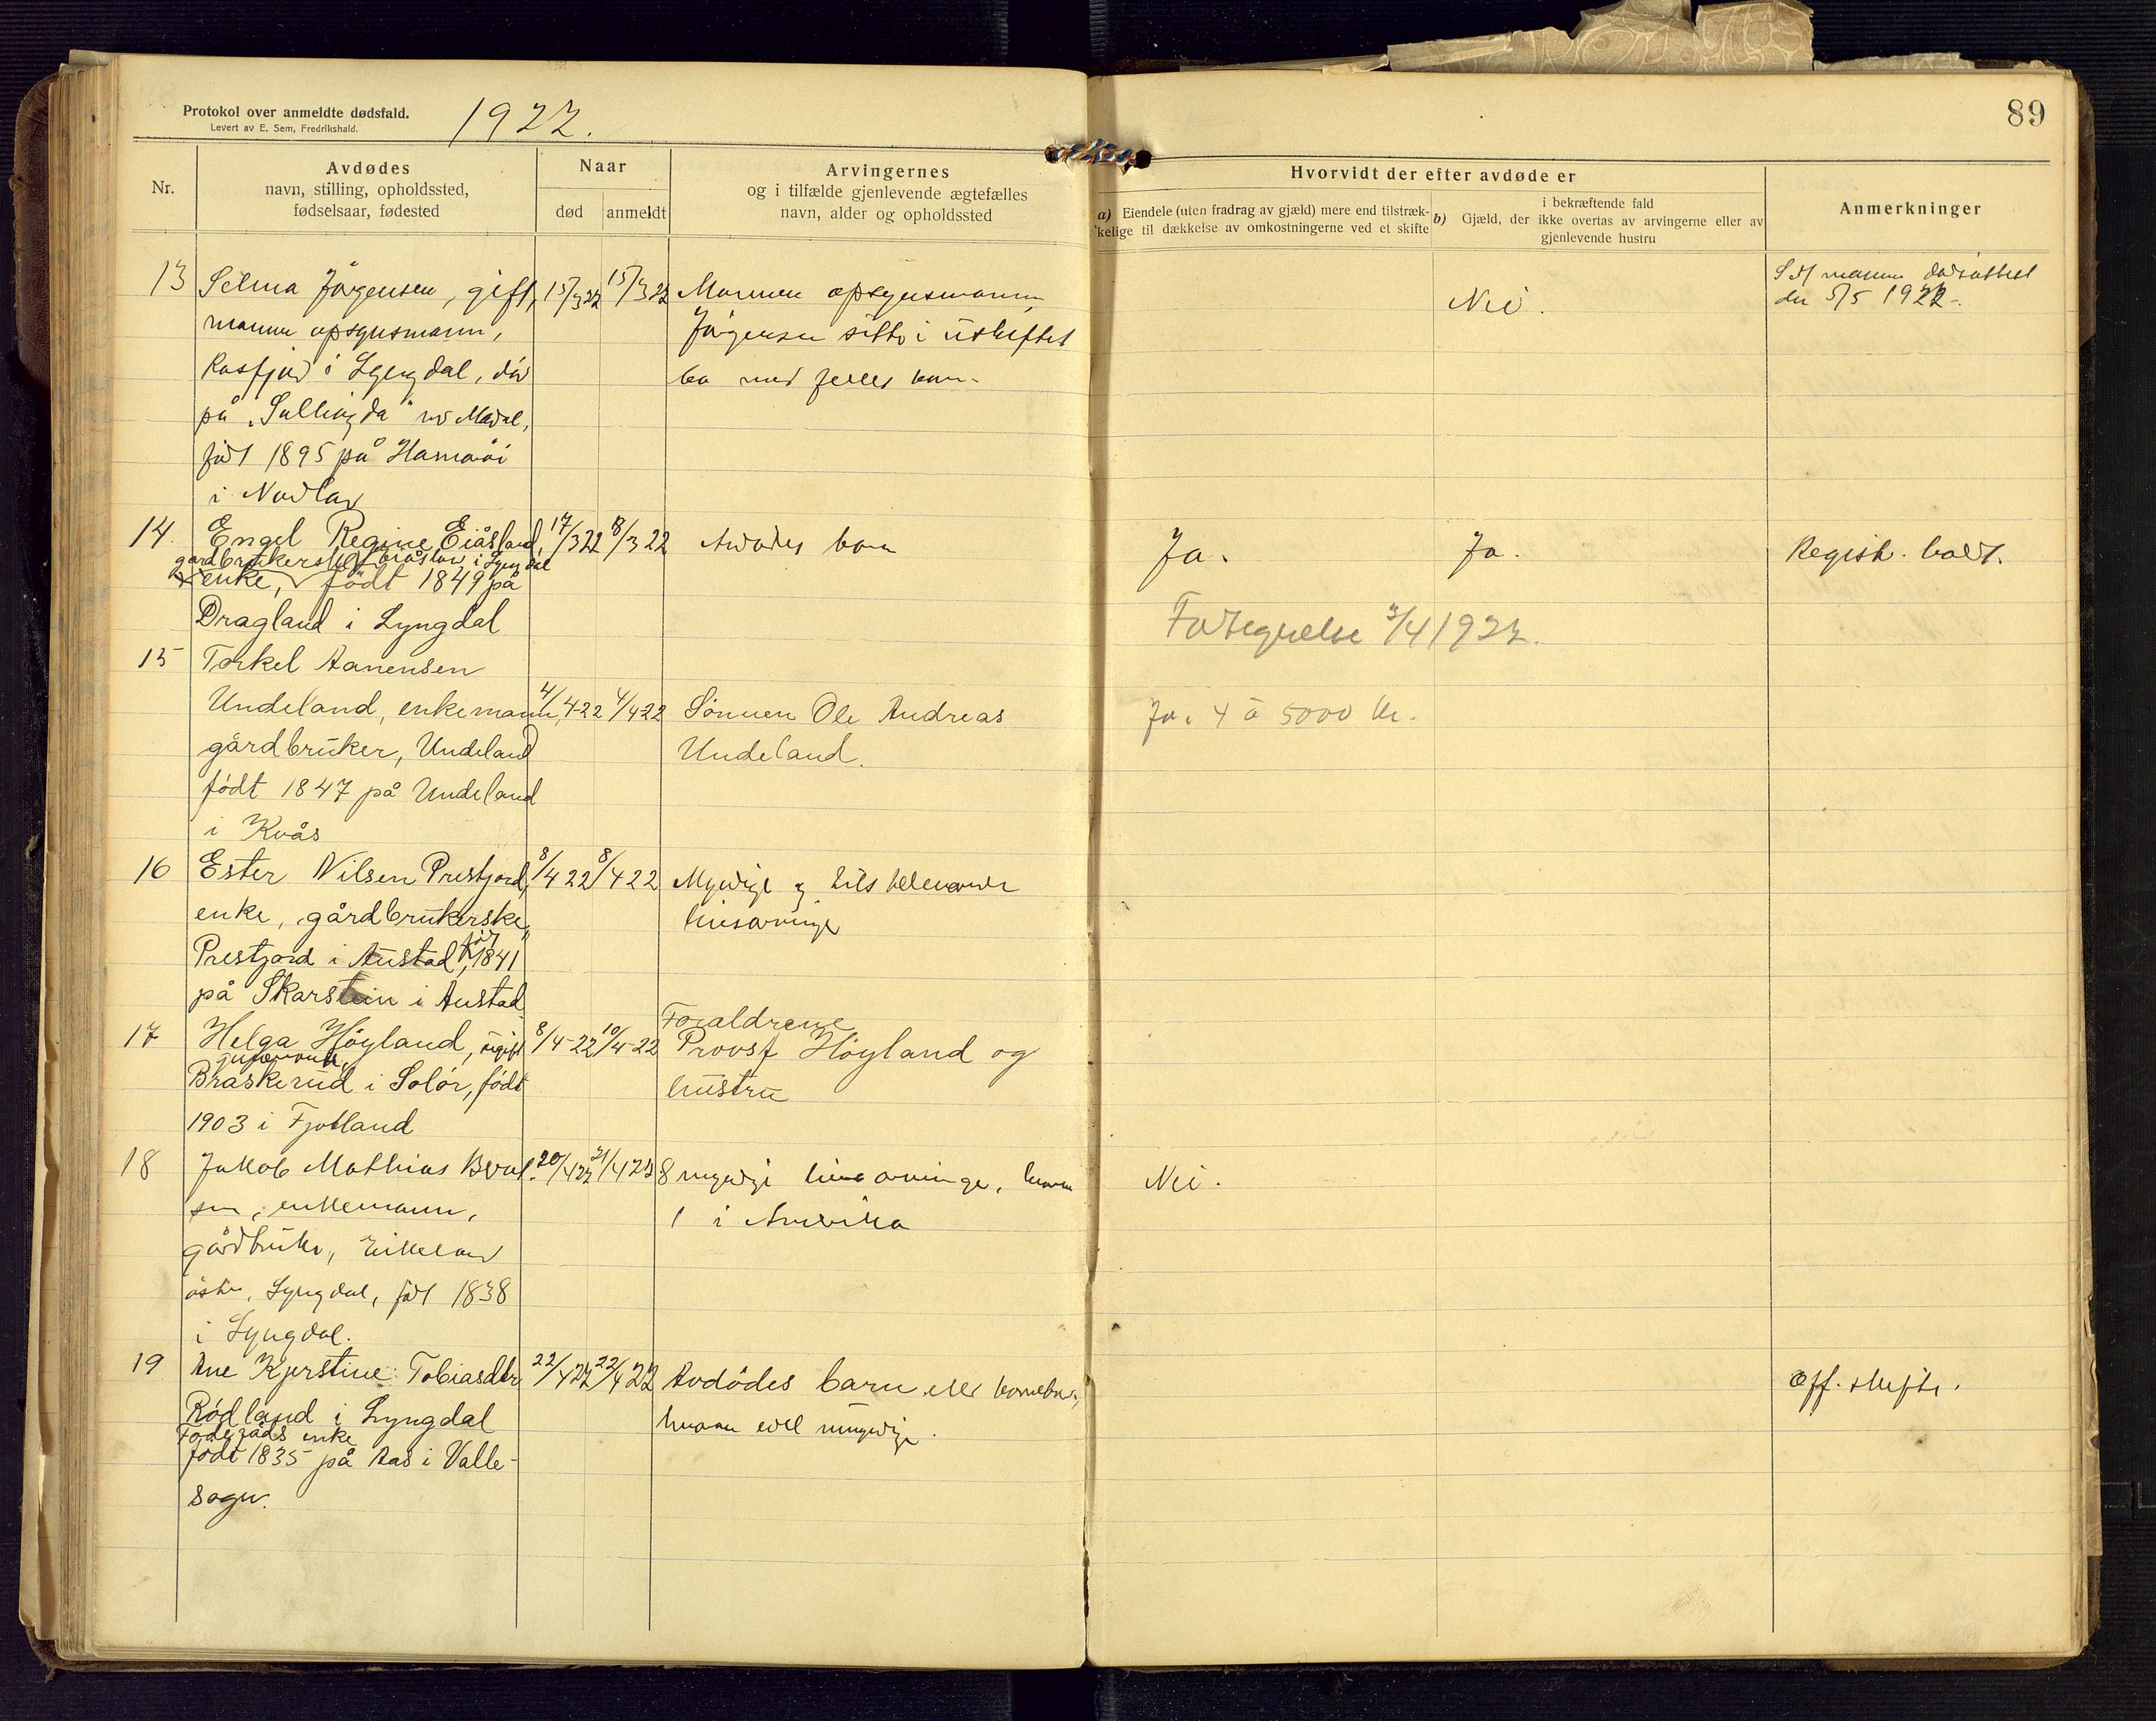 Protokol over anmeldte dødsfald.
Levert av E. Sem, Fredrikshald.
1922.
89
Nr.
Avdødes
navn, stilling, opholdssted,
fødselsaar, fødested
Naar
død
anmeldt
Arvingernes
og i tilfælde gjenlevende ægtefælles
navn, alder og opholdssted
Hvorvidt der efter avdøde er
a) Eiendele (uten fradrag av gjæld) mere end tilstræk-
kelige til dækkelse av omkostningerne ved et skifte
b) Gjæld, der
i bekræftende fald
ikke overtas av arvingerne eller av
gjenlevende hustru
Anmerkninger
13 Selma Jørgensen, gift, 15/3 22 15/3 22 Mannen opsynsmann
mannen opsynsmann, Jørgensen sitter i uskiftet
Rosfjord i Lyngdal, död bo med felles barn.
på
född 1895 på Hamarøi
i Nordland
Nei.
den 5/5 1922.
14. Engel Regine Eiåsland, 17/3 22 18/3 22 Avdødes barn
gårdbrukerske, Eiåsland i Lyngdal
enke, födt 1849 på
Dragland i Lyngdal
Ja. Ja. Registr. holdt.
Forsegnelse 3/4 1922.
15 Torkel Aanensen
Undeland, enkemann, 4/4-22 4/4-22 Sönnen Ole Andreas
gårdbruker, Undeland Undeland.
födt 1847 på Undeland
i Kvås
Ja. 4 à 5000 kr.
16 Ester Nilsen Prestjord, 8/4 22 8/4 22 Myndige og tilstedeværende
enke, gårdbrukerske, livsarvinger
Prestjord i Austad, född 1841
på Skarstein i Austad
17 Helga Höyland, ugift 8/4-22 10/4-22 Foraldrene
Provst Höyland og
hustru
Braskerud i Solör, födt
1903 i Fjotland
18 Jakob Mathias 20/4 22 21/4 22 8 myndige livsarvinger, hvorav
enkemann, 1 i Amerika
gårdbruker, Eikeland
östre, Lyngdal, född 1838
i Lyngdal.
Nei.
19 Ane Kjerstine Tobiasdtr 22/4 22 22/4 22 Avdödes barn eller barnebarn,
Rödland i Lyngdal hvorav endel umyndige.
Föderåds enke
födt 1835 på Aas i Valle-
sogn.
Off. skifte.